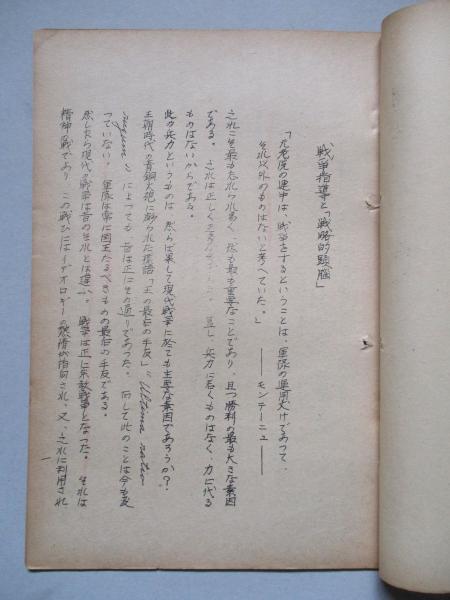 戦争指導と「戦略的頭脳」
「九老院の連中は、戦争をするということは、軍隊の運用だけであつて、
それ以外のものはないと考へていた。」
――モンテーニュ――
之れこそ最も忘れられ易く、一般も最も重要なことであり、且つ勝利の最も大きな素因
である。之れは正しく 蓋し、兵力に若くものはなく、力に代る
ものはないからである。
此の兵力というものは、然らば果して現代戦争に於ても主要な素因であろうか？
王朝時代の青銅火砲に彫られた標語「王の最后の手段」〃Ultima ratio
regum〃によっても、昔は正にその通りであった。而して此のことは今も変
っていない。軍隊は常に国王たるべきものの最后の手段である。
然しながら現代の戦争は昔のそれとは違う。戦争は正に宗教戦争となった。それは
精神の戦であり、この戦ひにはイデオロギーの激情が指向され、又、之れに利用され
一